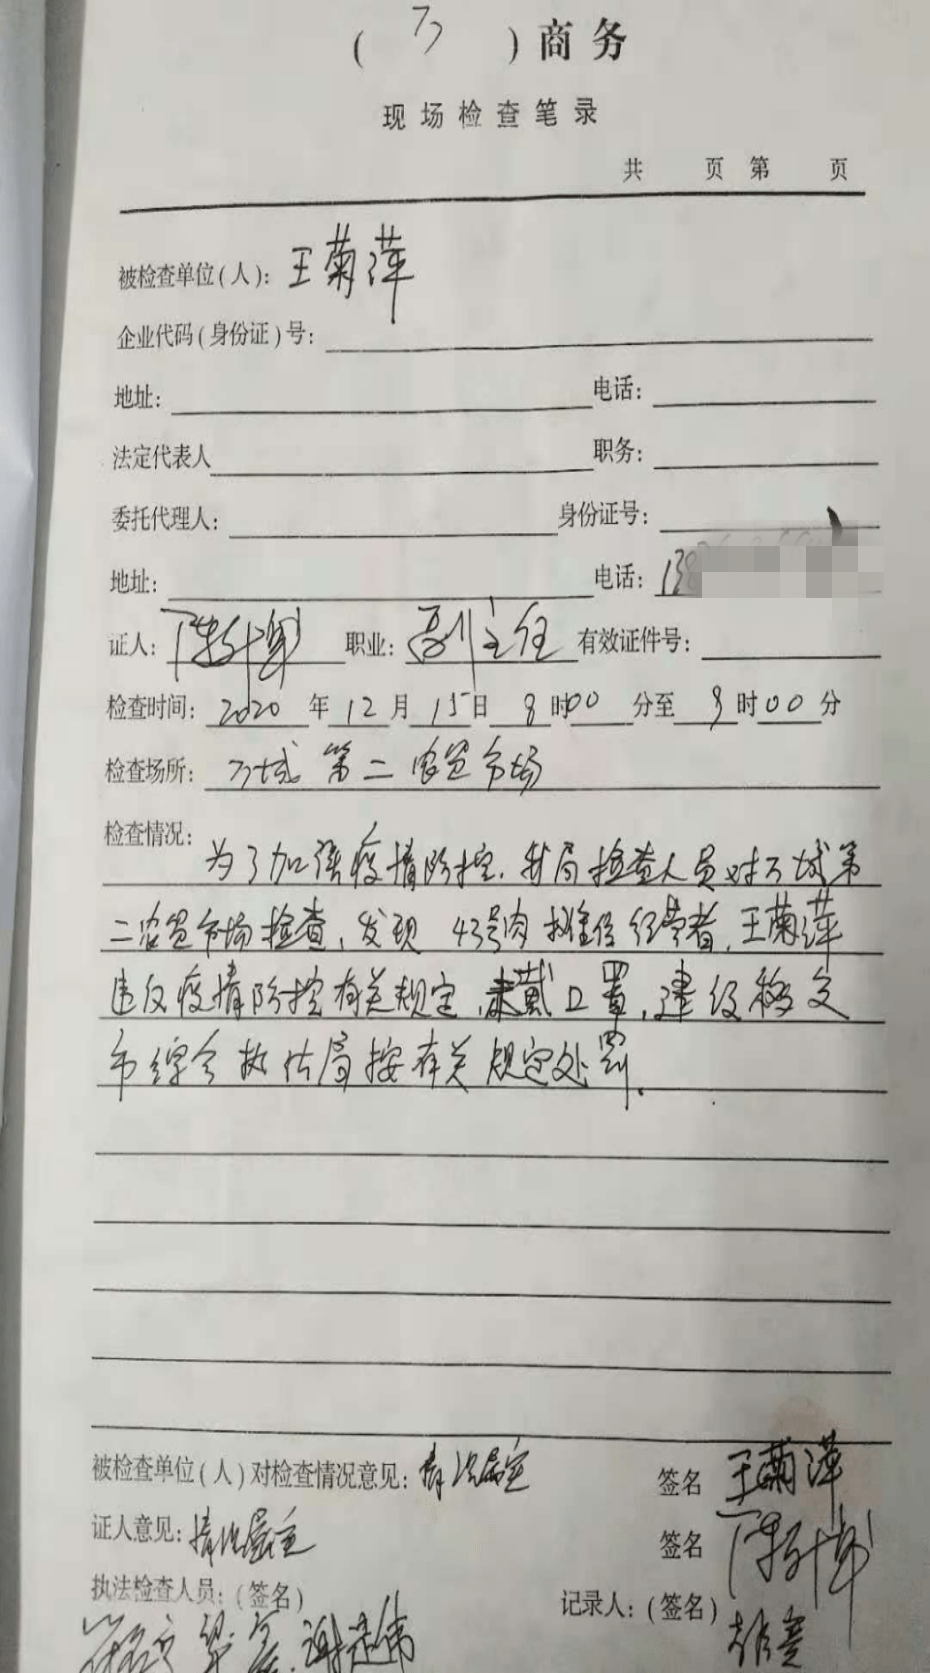 (万)商务
现场检查笔录
共 页 第 页
被检查单位(人): 王菊萍
企业代码(身份证)号:
地址: 电话:
法定代表人 职务:
委托代理人: 身份证号:
地址: 电话: 138
证人: 职业: 副主任 有效证件号:
检查时间: 2020 年 12 月 15 日 8 时 00 分至 9 时 00 分
检查场所: 万城第二农贸市场
检查情况: 为了加强疫情防控,我局检查人员对万城第
二农贸市场检查,发现43号肉摊位经营者,王菊萍
违反疫情防控有关规定,未戴口罩,建议移交
市综合执法局按有关规定处罚.
被检查单位(人)对检查情况意见: 情况属实 签名 王菊萍
证人意见: 情况属实 签名
执法检查人员:(签名) 记录人:(签名)